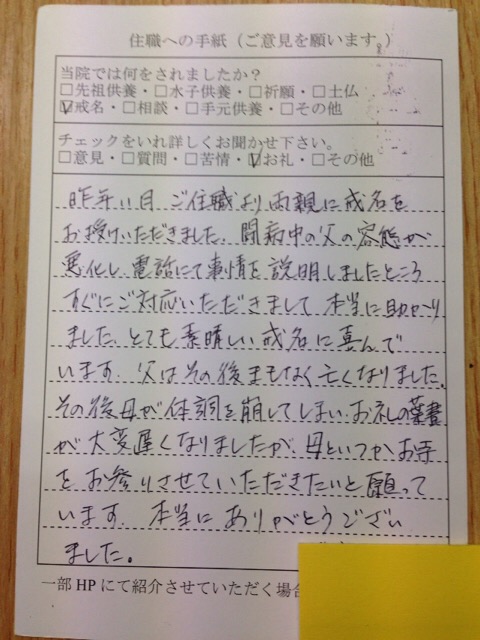 住職への手紙（ご意見を願います。）
当院では何をされましたか？
□先祖供養・□水子供養・□祈願・□土仏
☑戒名・□相談・□手元供養・□その他
チェックをいれ詳しくお聞かせ下さい。
□意見・□質問・□苦情・☑お礼・□その他
昨年11月 ご住職より両親に戒名を
お授けいただきました。闘病中の父の容態が
悪化し 電話にて事情を説明しましたところ
すぐにご対応いただきまして 本当に助かり
ました。とても素晴しい戒名に喜んで
います。父はその後まもなく亡くなりました。
その後母が体調を崩してしまい お礼の葉書
が大変遅くなりましたが、母といつかお寺
をお参りさせていただきたいと願って
います。本当にありがとうござい
ました。
一部HPにて紹介させていただく場合